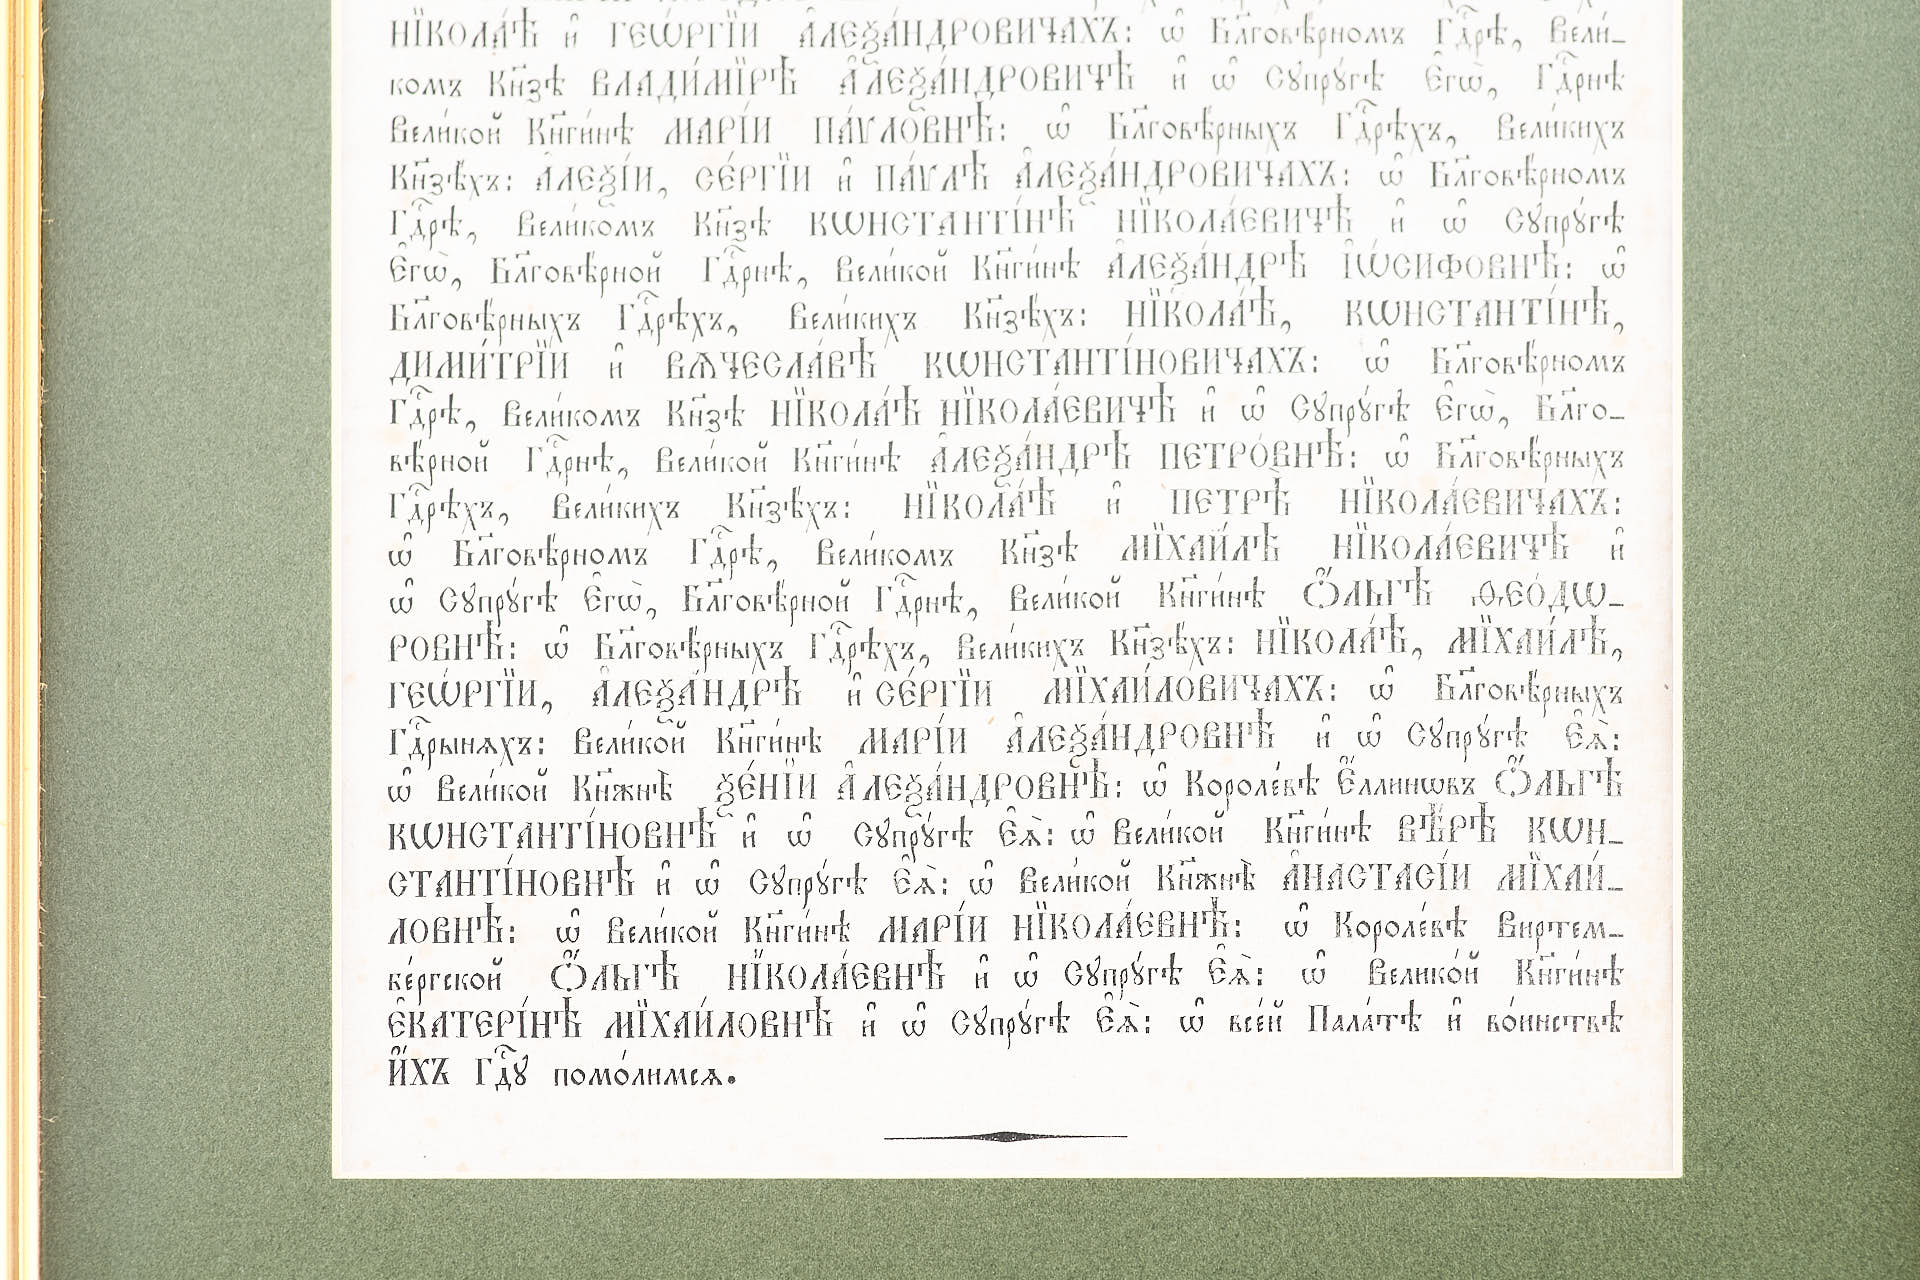 НЇКОЛА́Ѣ и҆ ГЕѠ́РГЇИ А҆ЛЕѮА́НДРОВИЧАХЪ: ѡ҆ Бл҃говѣ́рномъ Гдⷭ҇рѣ, Вели́-
комъ Кн҃зѣ ВЛАДИ́МЇРѢ А҆ЛЕѮА́НДРОВИЧѢ и҆ ѡ҆ Сꙋпрꙋ́гѣ Є҆гѡ̀, Гдⷭ҇рнѣ
Вели́кой Кн҃ги́нѣ МАРІ́И ПА́ѴЛОВНѢ: ѡ҆ Бл҃говѣ́рныхъ Гдⷭ҇рѣхъ, Вели́кихъ
Кн҃зѣ́хъ: А҆ЛЕѮІ́И, СЕ́РГЇИ и҆ ПА́ѴЛѢ А҆ЛЕѮА́НДРОВИЧАХЪ: ѡ҆ Бл҃говѣ́рномъ
Гдⷭ҇рѣ, Вели́комъ Кн҃зѣ КѠНСТАНТІ́НѢ НЇКОЛА́ЕВИЧѢ и҆ ѡ҆ Сꙋпрꙋ́гѣ
Є҆гѡ̀, Бл҃говѣ́рной Гдⷭ҇рнѣ, Вели́кой Кн҃ги́нѣ А҆ЛЕѮА́НДРѢ І҆Ѡ́СИФОВНѢ: ѡ҆
Бл҃говѣ́рныхъ Гдⷭ҇рѣхъ, Вели́кихъ Кн҃зѣ́хъ: НЇКОЛА́Ѣ, КѠНСТАНТІ́НѢ,
ДИМИ́ТРЇИ и҆ ВѦЧЕСЛА́ВѢ КѠНСТАНТІ́НОВИЧАХЪ: ѡ҆ Бл҃говѣ́рномъ
Гдⷭ҇рѣ, Вели́комъ Кн҃зѣ НЇКОЛА́Ѣ НЇКОЛА́ЕВИЧѢ и҆ ѡ҆ Сꙋпрꙋ́гѣ Є҆гѡ̀, Бл҃го-
вѣ́рной Гдⷭ҇рнѣ, Вели́кой Кн҃ги́нѣ А҆ЛЕѮА́НДРѢ ПЕТРО́ВНѢ: ѡ҆ Бл҃говѣ́рныхъ
Гдⷭ҇рѣхъ, Вели́кихъ Кн҃зѣ́хъ: НЇКОЛА́Ѣ и҆ ПЕТРѢ̀ НЇКОЛА́ЕВИЧАХЪ:
ѡ҆ Бл҃говѣ́рномъ Гдⷭ҇рѣ, Вели́комъ Кн҃зѣ МЇХАИ́ЛѢ НЇКОЛА́ЕВИЧѢ и҆
ѡ҆ Сꙋпрꙋ́гѣ Є҆гѡ̀, Бл҃говѣ́рной Гдⷭ҇рнѣ, Вели́кой Кн҃ги́нѣ Ѻ҆́ЛЬГѢ ѲЕО́ДѠ-
РОВНѢ: ѡ҆ Бл҃говѣ́рныхъ Гдⷭ҇рѣхъ, Вели́кихъ Кн҃зѣ́хъ: НЇКОЛА́Ѣ, МЇХАИ́ЛѢ,
ГЕѠ́РГЇИ, А҆ЛЕѮА́НДРѢ и҆ СЕ́РГЇИ МЇХАИ́ЛОВИЧАХЪ: ѡ҆ Бл҃говѣ́рныхъ
Гдⷭ҇рынѧхъ: Вели́кой Кн҃ги́нѣ МАРІ́И А҆ЛЕѮА́НДРОВНѢ и҆ ѡ҆ Сꙋпрꙋ́гѣ Є҆ѧ̀:
ѡ҆ Вели́кой Кн҃жнѣ̀ ѮЕ́НЇИ А҆ЛЕѮА́НДРОВНѢ: ѡ҆ Короле́вѣ Є҆́ллинѡвъ Ѻ҆́ЛЬГѢ
КѠНСТАНТІ́НОВНѢ и҆ ѡ҆ Сꙋпрꙋ́гѣ Є҆ѧ̀: ѡ҆ Вели́кой Кн҃ги́нѣ ВѢ́РѢ КѠН-
СТАНТІ́НОВНѢ и҆ ѡ҆ Сꙋпрꙋ́гѣ Є҆ѧ̀: ѡ҆ Вели́кой Кн҃жнѣ̀ А҆НАСТАСІ́И МЇХАИ́-
ЛОВНѢ: ѡ҆ Вели́кой Кн҃ги́нѣ МАРІ́И НЇКОЛА́ЕВНѢ: ѡ҆ Короле́вѣ Виртем-
бе́ргской Ѻ҆́ЛЬГѢ НЇКОЛА́ЕВНѢ и҆ ѡ҆ Сꙋпрꙋ́гѣ Є҆ѧ̀: ѡ҆ Вели́кой Кн҃ги́нѣ
Є҆КАТЕРІ́НѢ МЇХАИ́ЛОВНѢ и҆ ѡ҆ Сꙋпрꙋ́гѣ Є҆ѧ̀: ѡ҆ все́й Пала́тѣ и҆ во́инствѣ
И҆́ХЪ Гдⷭ҇ꙋ помо́лимсѧ.